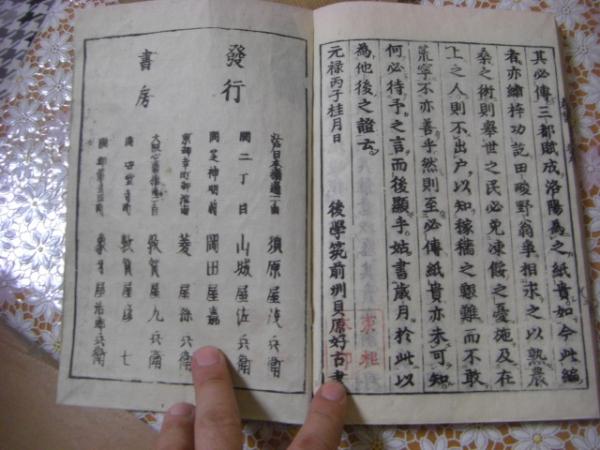 其必傳三都賦成洛陽爲之紙貴如今此編
者亦繡梓功訖田畯野翁爭相求之以熟農
桑之術則擧世之民必免凍餒之憂施及在
上之人則不出戸以知稼穡之艱難而不敢
荒寧不亦善乎然則至必傳紙貴亦未可知
何必待予之言而後顯乎姑書歳月於此以
為他後之證云
元禄丙子桂月日
後學筑前州貝原好古書
發行
書房
須原屋茂兵衛
同二丁目
山城屋佐兵衛
同芝神明前
岡田屋嘉七
菱屋孫兵衛
敦賀屋九兵衛